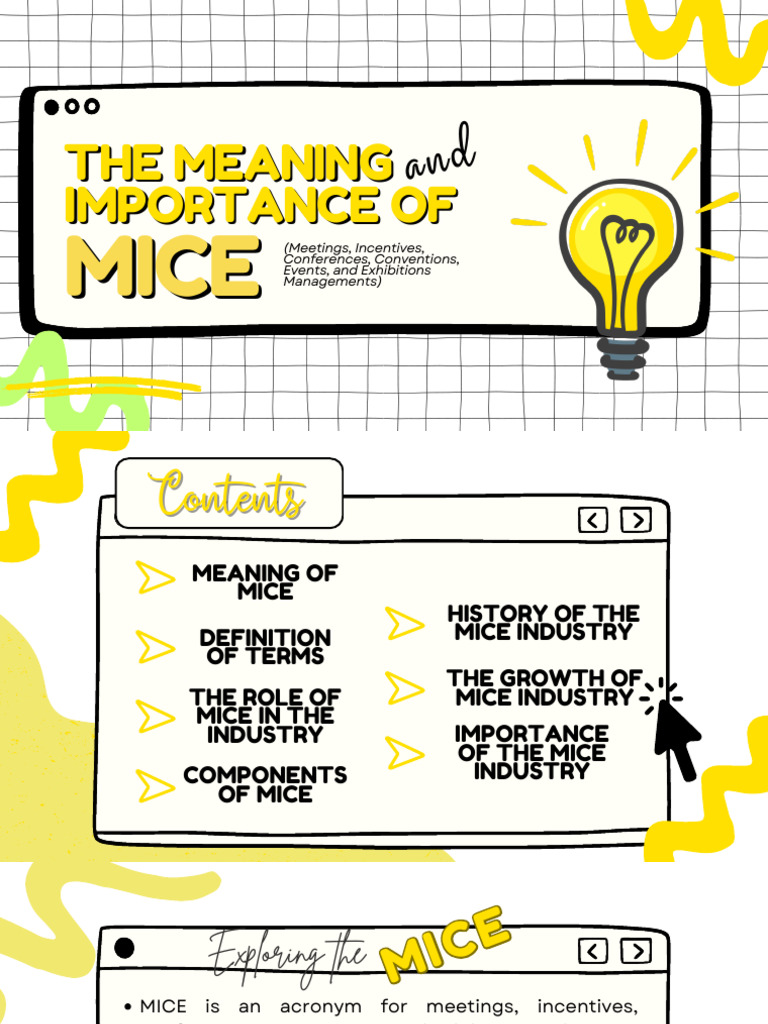 THE MEANING and
IMPORTANCE OF
MICE
(Meetings, Incentives,
Conferences, Conventions,
Events, and Exhibitions
Managements)
Contents
MEANING OF
MICE
DEFINITION
OF TERMS
THE ROLE OF
MICE IN THE
INDUSTRY
COMPONENTS
OF MICE
HISTORY OF THE
MICE INDUSTRY
THE GROWTH OF
MICE INDUSTRY
IMPORTANCE
OF THE MICE
INDUSTRY
Exploring the MICE
• MICE is an acronym for meetings, incentives,